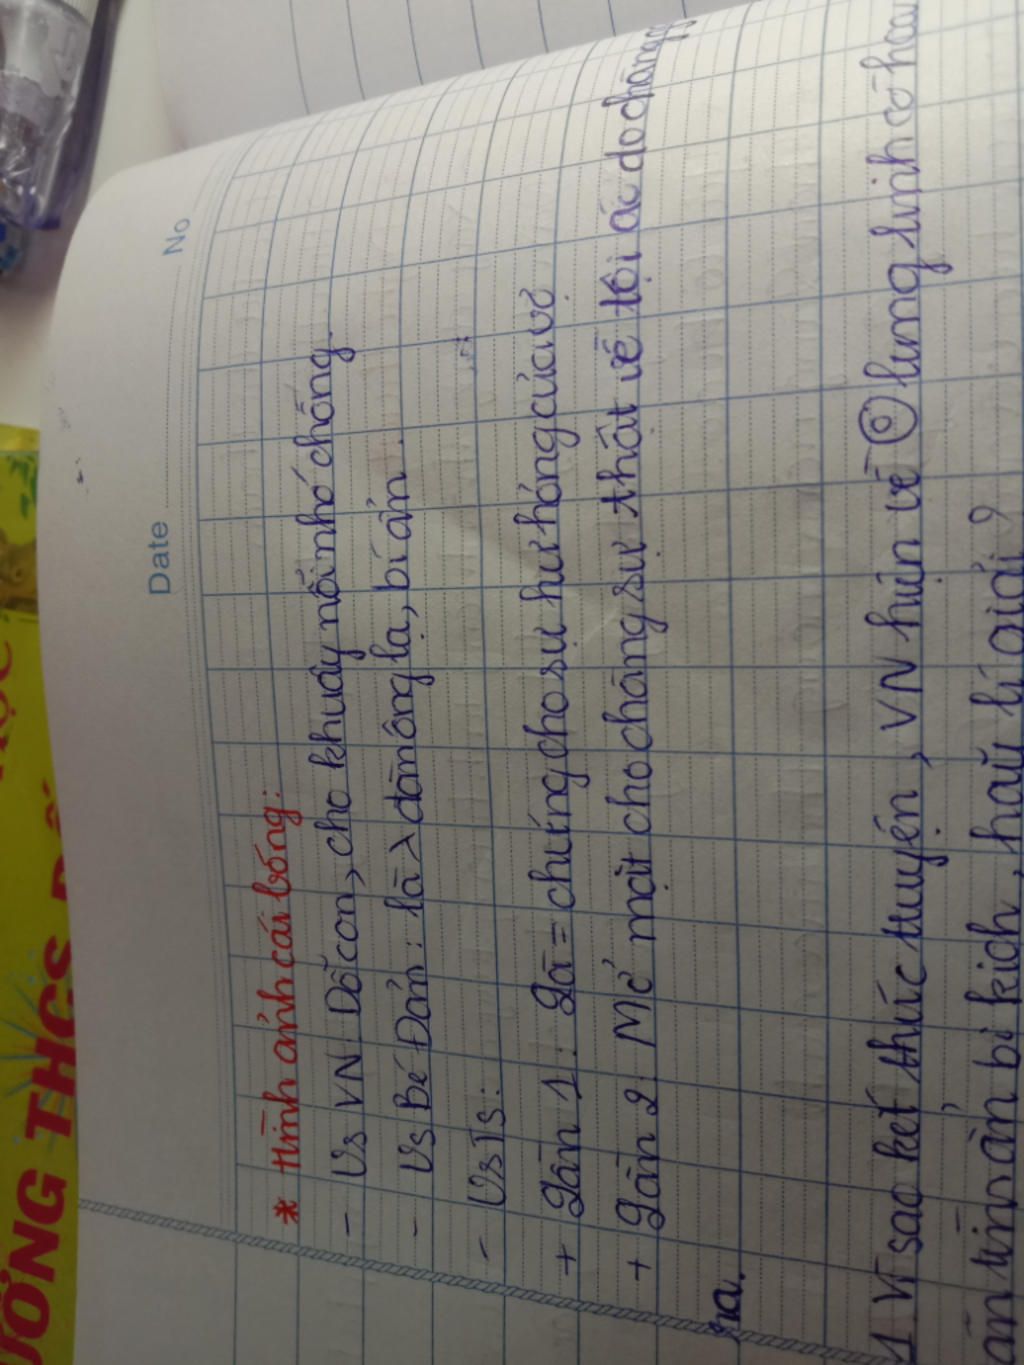 ƯỜNG THCS
Date No
* Hình ảnh cái bóng:
- Vs VN: Dỗ con, cho khuây nỗi nhớ chồng.
- Vs Bé Đản: là λ đàn ông lạ, bí ẩn.
- Vs TS:
+ Lần 1: Là = chứng cho sự hư hỏng của vợ
+ Lần 2: Mở mắt cho chàng sự thật về tội ác do chàng
ra.
1. Vì sao kết thúc truyện, VN hiện về lung linh cờ hoa
ẩn bi kịch, hãy lí giải?